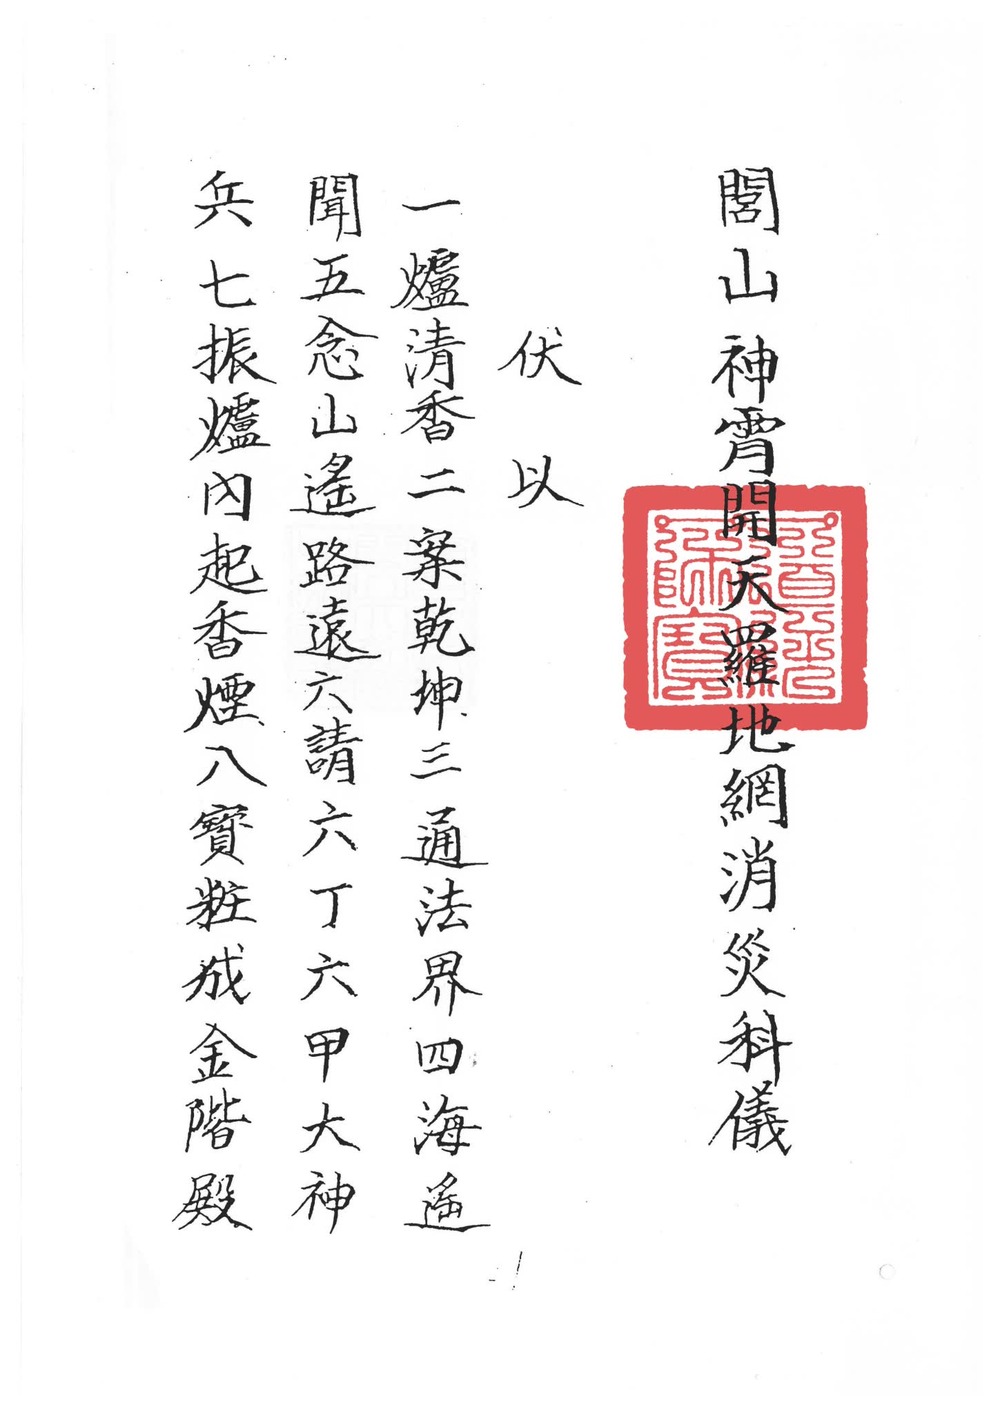 閭山神霄開天羅地網消災科儀
伏以
一爐清香二案乾坤三通法界四海遙
聞五念山遙路遠六請六丁六甲大神
兵七振爐內起香煙八寶粧成金階殿
-1